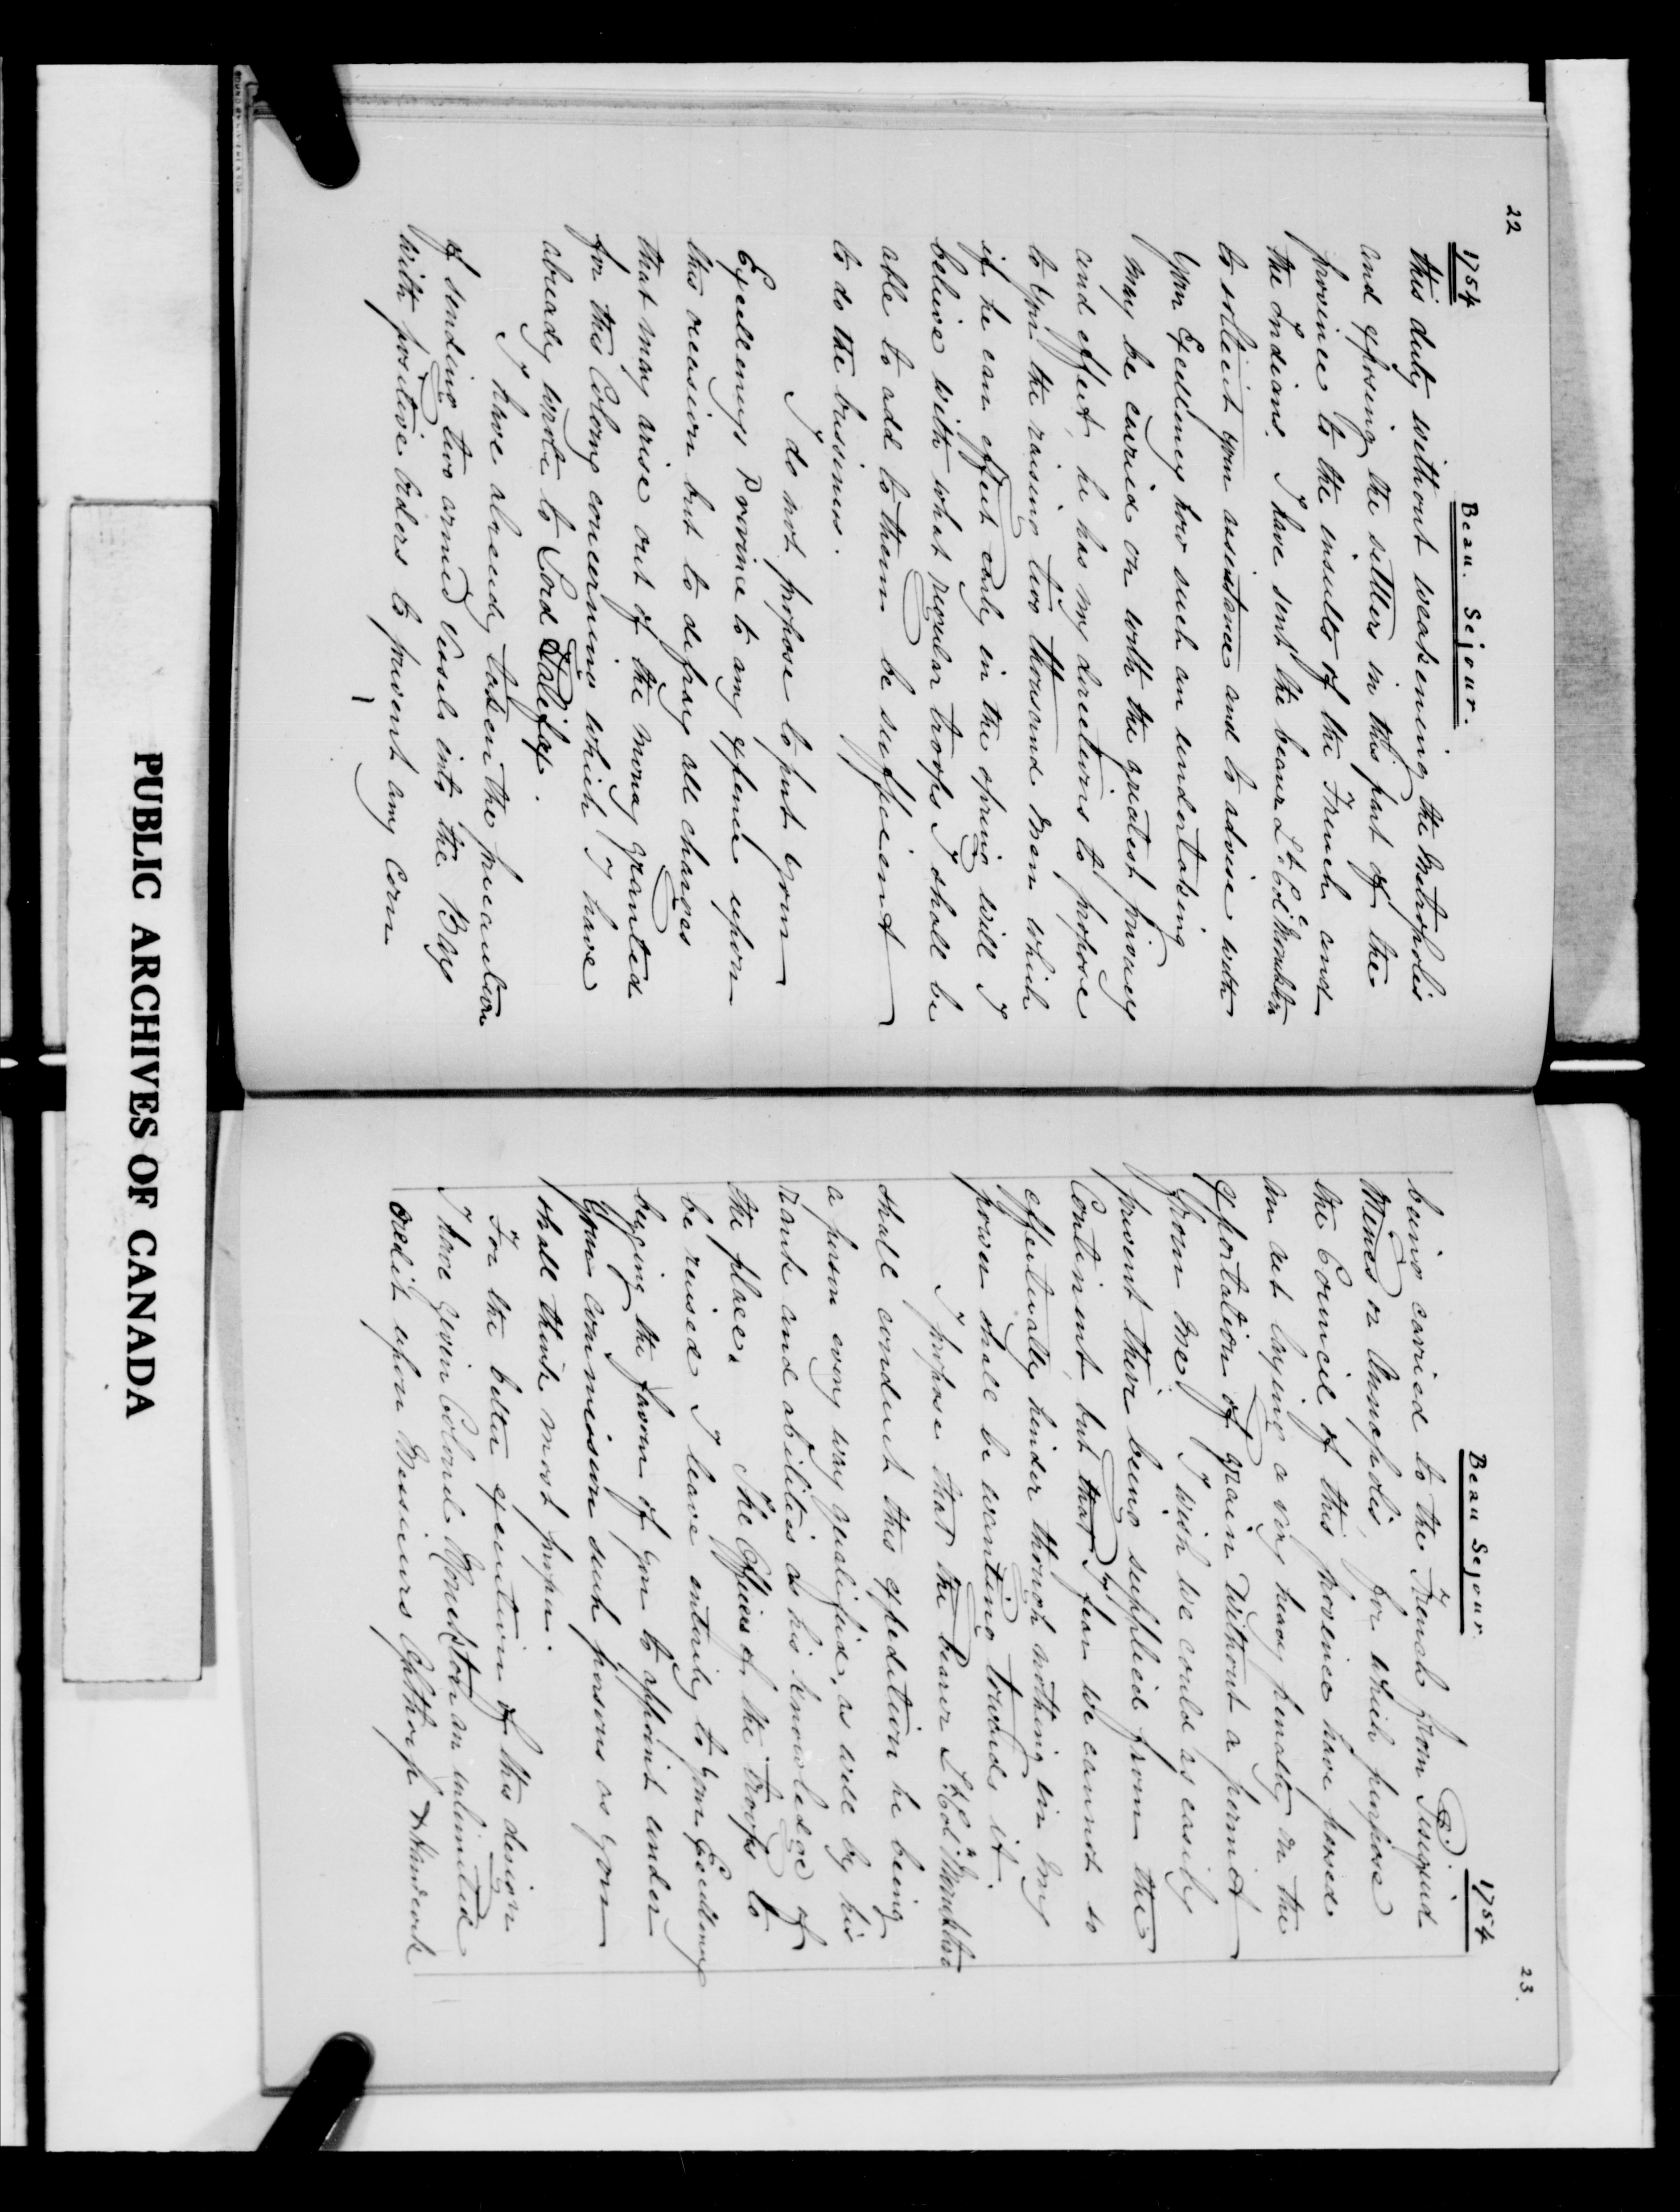 22
1754
Beau. Sejour.
this duty without weakening the Metropolis
and exposing the settlers in this part of the
province to the insults of the French and
the Indians. I have sent the bearer Lt. Col. Monckton
to sollicit your assistance and to advise with
Your Excellency how such an undertaking
may be carried on with the greatest privacy
and effect, he has my directions to propose
to You the raising two thousand Men which
if he can effect early in the spring will I
believe with what regular troops I shall be
able to add to them be sufficient
to do the business.
I do not propose to put Your
Excellency's Province to any expence upon
this occasion but to defray all charges
that may arise out of the money granted
for this Colony concerning which I have
already wrote to Lord Halifax.
I have already taken the precaution
of sending two armed Vessels into the Bay
with positive Orders to prevent any Corn
Beau Sejour
1754
23.
being carried to the French from Pisiquid
Minas or Annapolis, for which purpose
the Council of this province have passed
an act laying a very heavy penalty on the
exportation of grain without a permit
from me. I wish we could as easily
prevent their being supplied from the
Continent, but that I fear we cannot so
effectually hinder though nothing in my
power shall be wanting towards it.
I propose that the bearer Lt. Col. Monckton
shall conduct this expedition he being
a person every way qualified, as well by his
rank and abilities as his knowledge of
the place. The Officers of the troops to
be raised I leave entirely to Your Excellency
begging the favour of you to appoint under
Your commission such persons as you
shall think most proper.
For the better execution of this design
I have given Colonel Monckton an unlimited
credit upon Messieurs Apthorp & Hancock
PUBLIC ARCHIVES OF CANADA